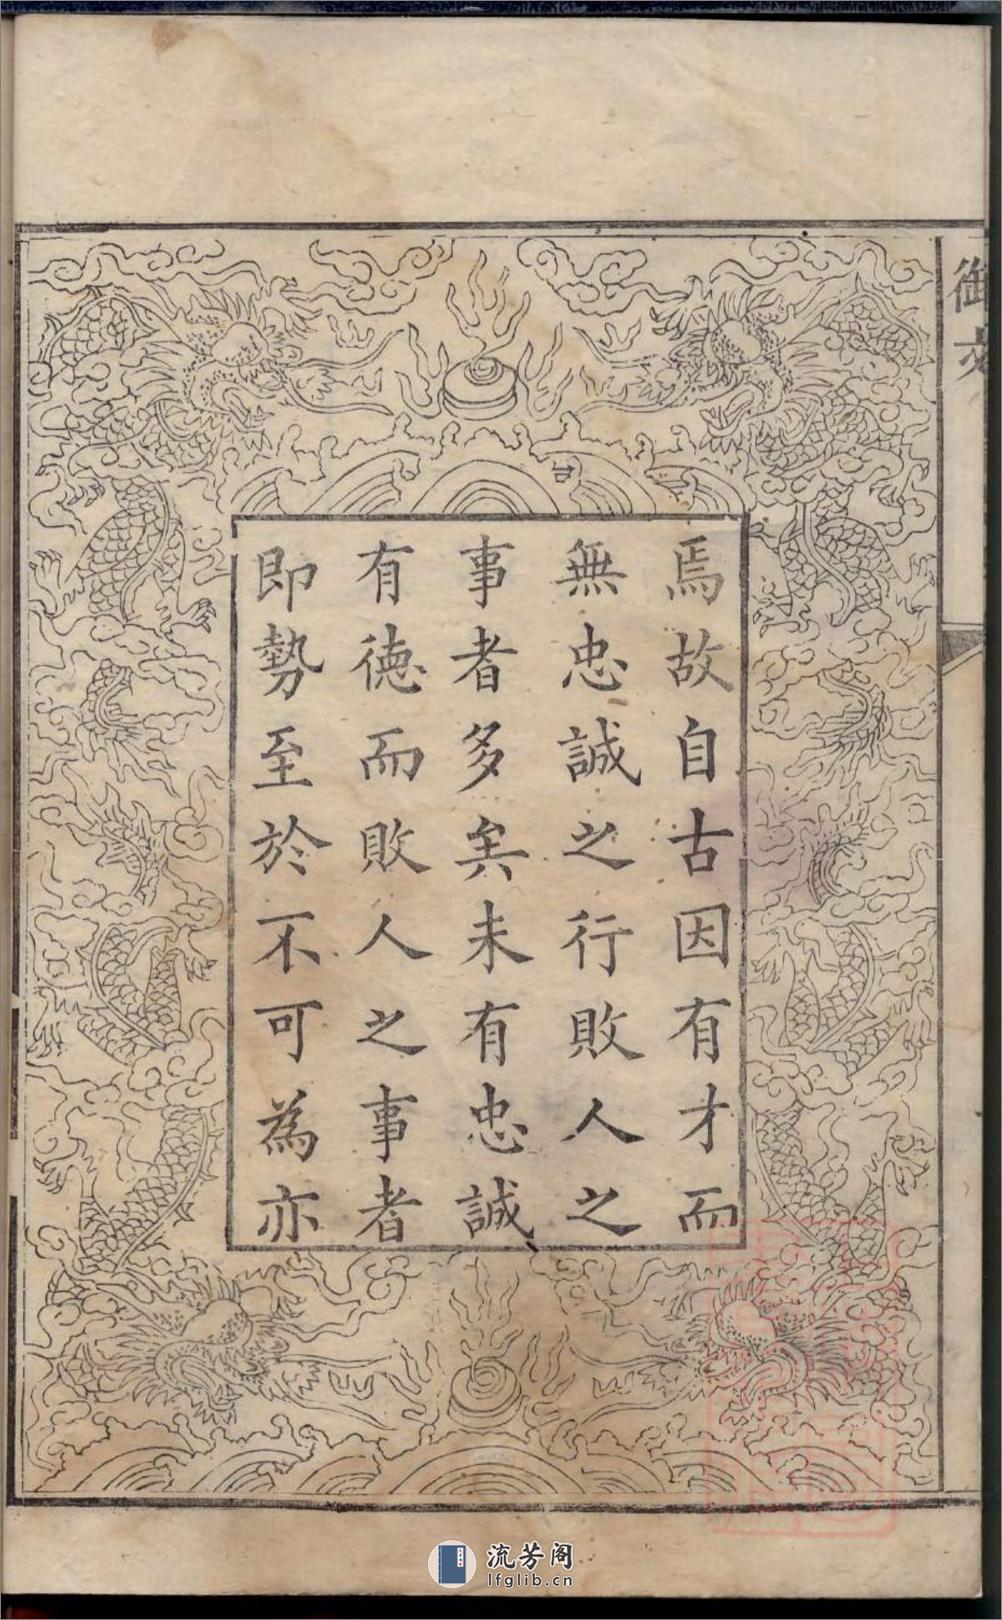 焉故自古因有才而
無忠誠之行敗人之
事者多矣未有忠誠
有德而敗人之事者
即勢至於不可為亦
御
流芳阁
lfglib.cn